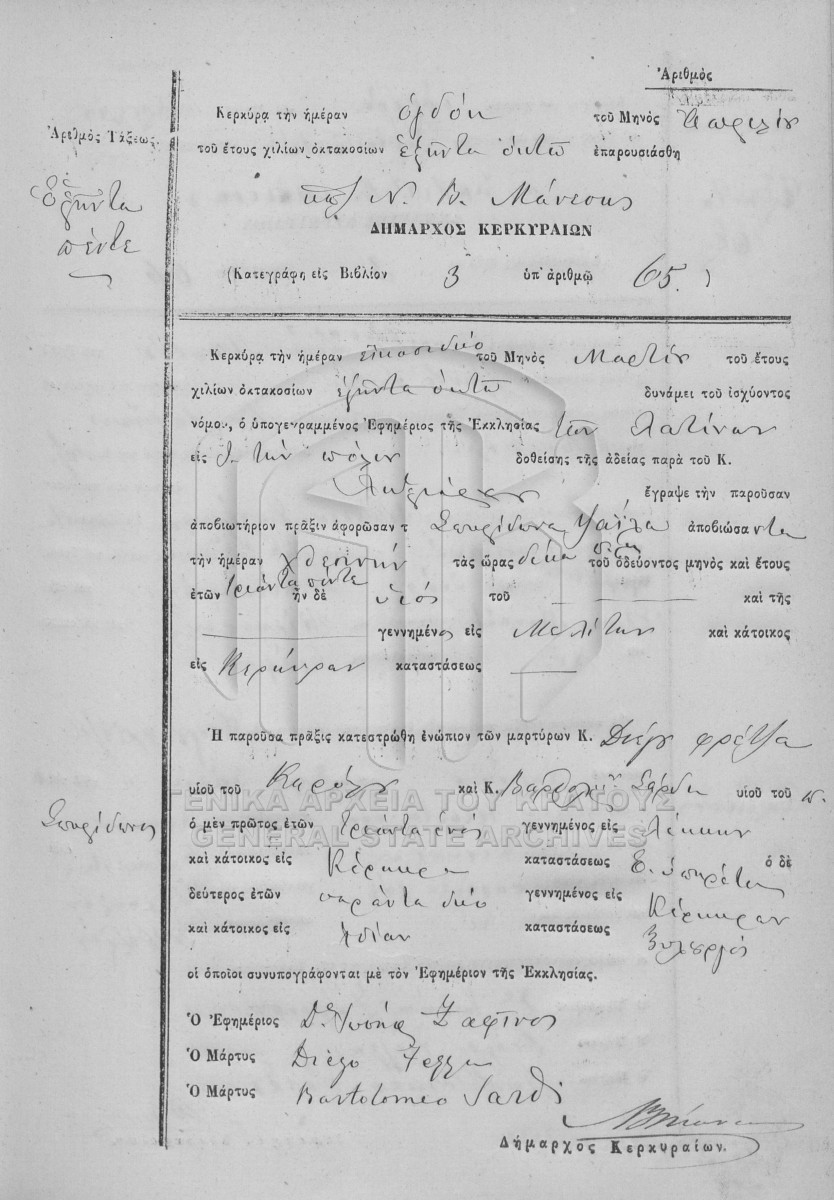 Ἀριθμὸς
Κερκύρᾳ τὴν ἡμέραν ὀγδόη τοῦ Μηνὸς Ἀπριλίου
Ἀριθμὸς Τάξεως.
τοῦ ἔτους χιλίων ὀκτακοσίων ἑξῆντα ὀκτὼ ἐπαρουσιάσθη
ἑξῆντα
πέντε
Ν. Β. Μάνεσης
ΔΗΜΑΡΧΟΣ ΚΕΡΚΥΡΑΙΩΝ
(Κατεγράφη εἰς Βιβλίον 3 ὑπ' ἀριθμῷ 65.)
Κερκύρᾳ τὴν ἡμέραν εἰκοσιδύο τοῦ Μηνὸς Μαρτίου τοῦ ἔτους
χιλίων ὀκτακοσίων ἑξῆντα ὀκτὼ δυνάμει τοῦ ἰσχύοντος
νόμου, ὁ ὑπογεγραμμένος Ἐφημέριος τῆς Ἐκκλησίας τῶν Λατίνων
εἰς τὴν πόλιν δοθείσης τῆς ἀδείας παρὰ τοῦ Κ.
ἔγραψε τὴν παροῦσαν
ἀποβιωτήριον πρᾶξιν ἀφορῶσαν τ Σπυρίδωνα ἀποβιώσαντα
τὴν ἡμέραν χθεσινὴν τὰς ὥρας δέκα τοῦ ὁδεύοντος μηνὸς καὶ ἔτους
ἐτῶν τριάντα πέντε ἦν δὲ υἱός τοῦ — καὶ τῆς
— γεννημένος εἰς Μελίταν καὶ κάτοικος
εἰς Κέρκυραν καταστάσεως —
Ἡ παροῦσα πρᾶξις κατεστρώθη ἐνώπιον τῶν μαρτύρων Κ. Διέγο
υἱοῦ τοῦ Καρόλου καὶ Κ. Βαρθολ. Σάρδη υἱοῦ τοῦ π.
ΓΕΝΙΚΑ ΑΡΧΕΙΑ ΤΟΥ ΚΡΑΤΟΥΣ
Σπυρίδωνος
ὁ μὲν πρῶτος ἐτῶν τριάντα ἑνός γεννημένος εἰς Λέκκην
GENERAL STATE ARCHIVES
καὶ κάτοικος εἰς Κέρκυρα καταστάσεως ὑπηρέτης ὁ δὲ
δεύτερος ἐτῶν σαράντα δύο γεννημένος εἰς Κέρκυραν
καὶ κάτοικος εἰς ἰδίαν καταστάσεως ξυλουργός
οἱ ὁποῖοι συνυπογράφονται μὲ τὸν Ἐφημέριον τῆς Ἐκκλησίας.
Ὁ Ἐφημέριος Δ. Ἰωσὴφ
Ὁ Μάρτυς Diego
Ὁ Μάρτυς Bartolomeo Sardi
Δήμαρχος Κερκυραίων.